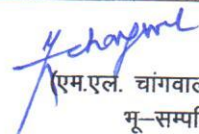 (एम.एल. चांगवाल
भू–सम्पि